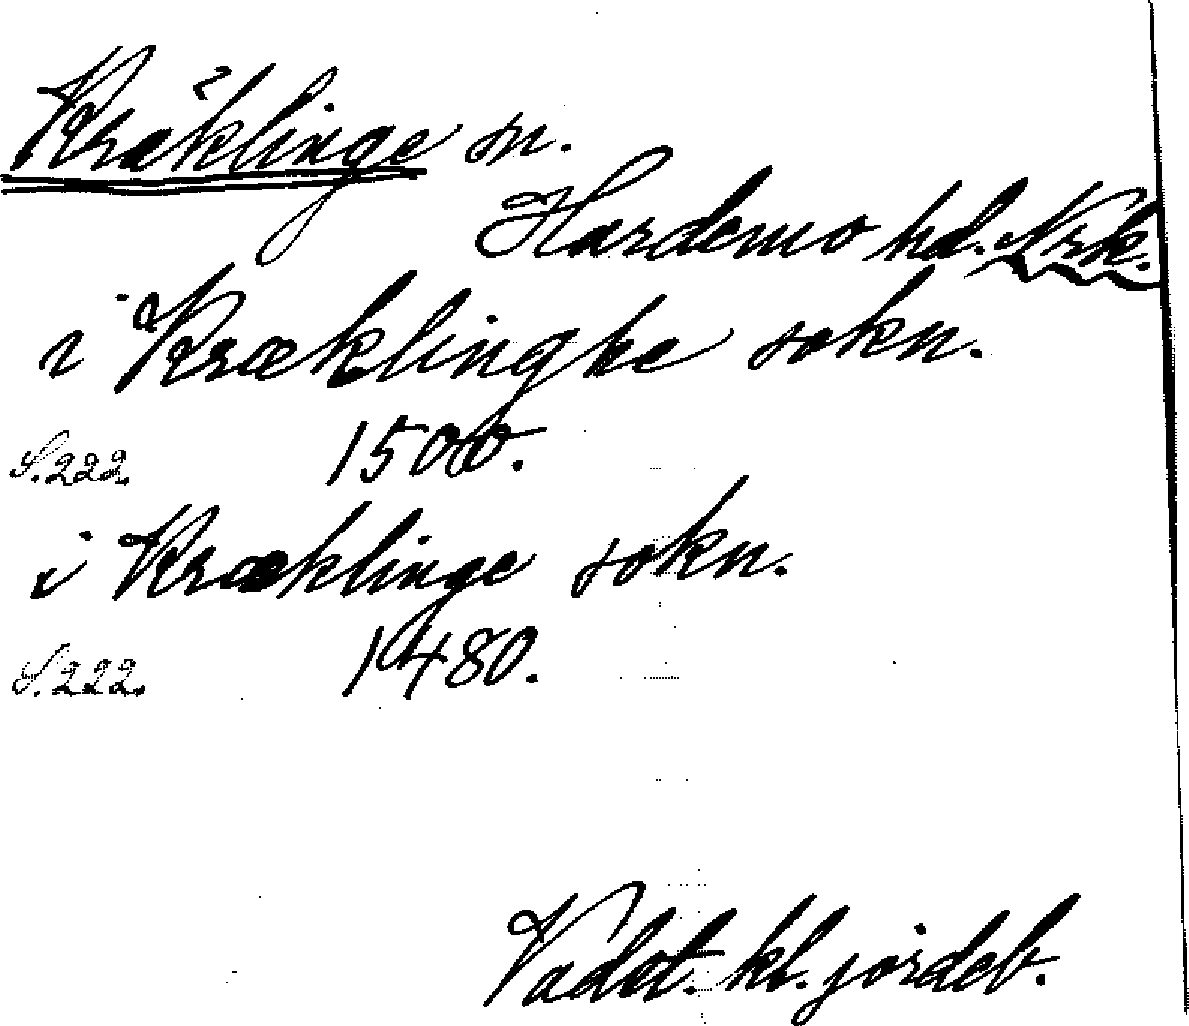 Kräklinge sn.
Hardemo hd. Nrk.
i Kræklinghe sokn.
S. 222. 1500.
i Kræklinge sokn.
S. 222. 1480.
Vadst. kl. jordeb.